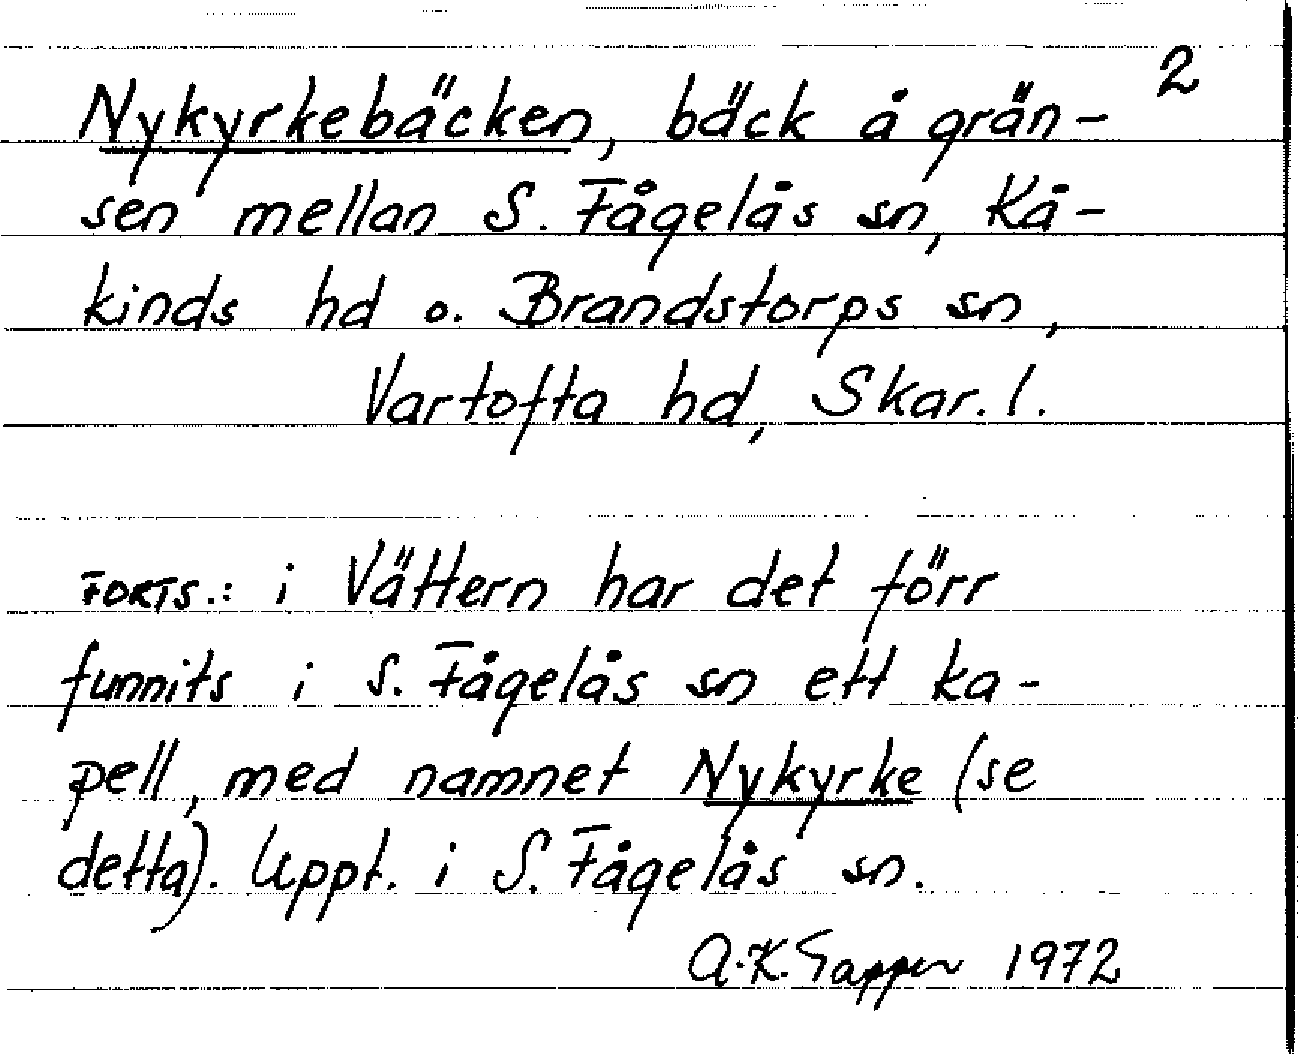 2
Nykyrkebäcken, bäck å grän-
sen mellan S. Fågelås sn, Kå-
kinds hd o. Brandstorps sn,
Vartofta hd, Skar. l.
FORTS.: i Vättern har det förr
funnits i S. Fågelås sn ett ka-
pell, med namnet Nykyrke (se
detta). Uppt. i S. Fågelås sn.
A.K. Sapper 1972